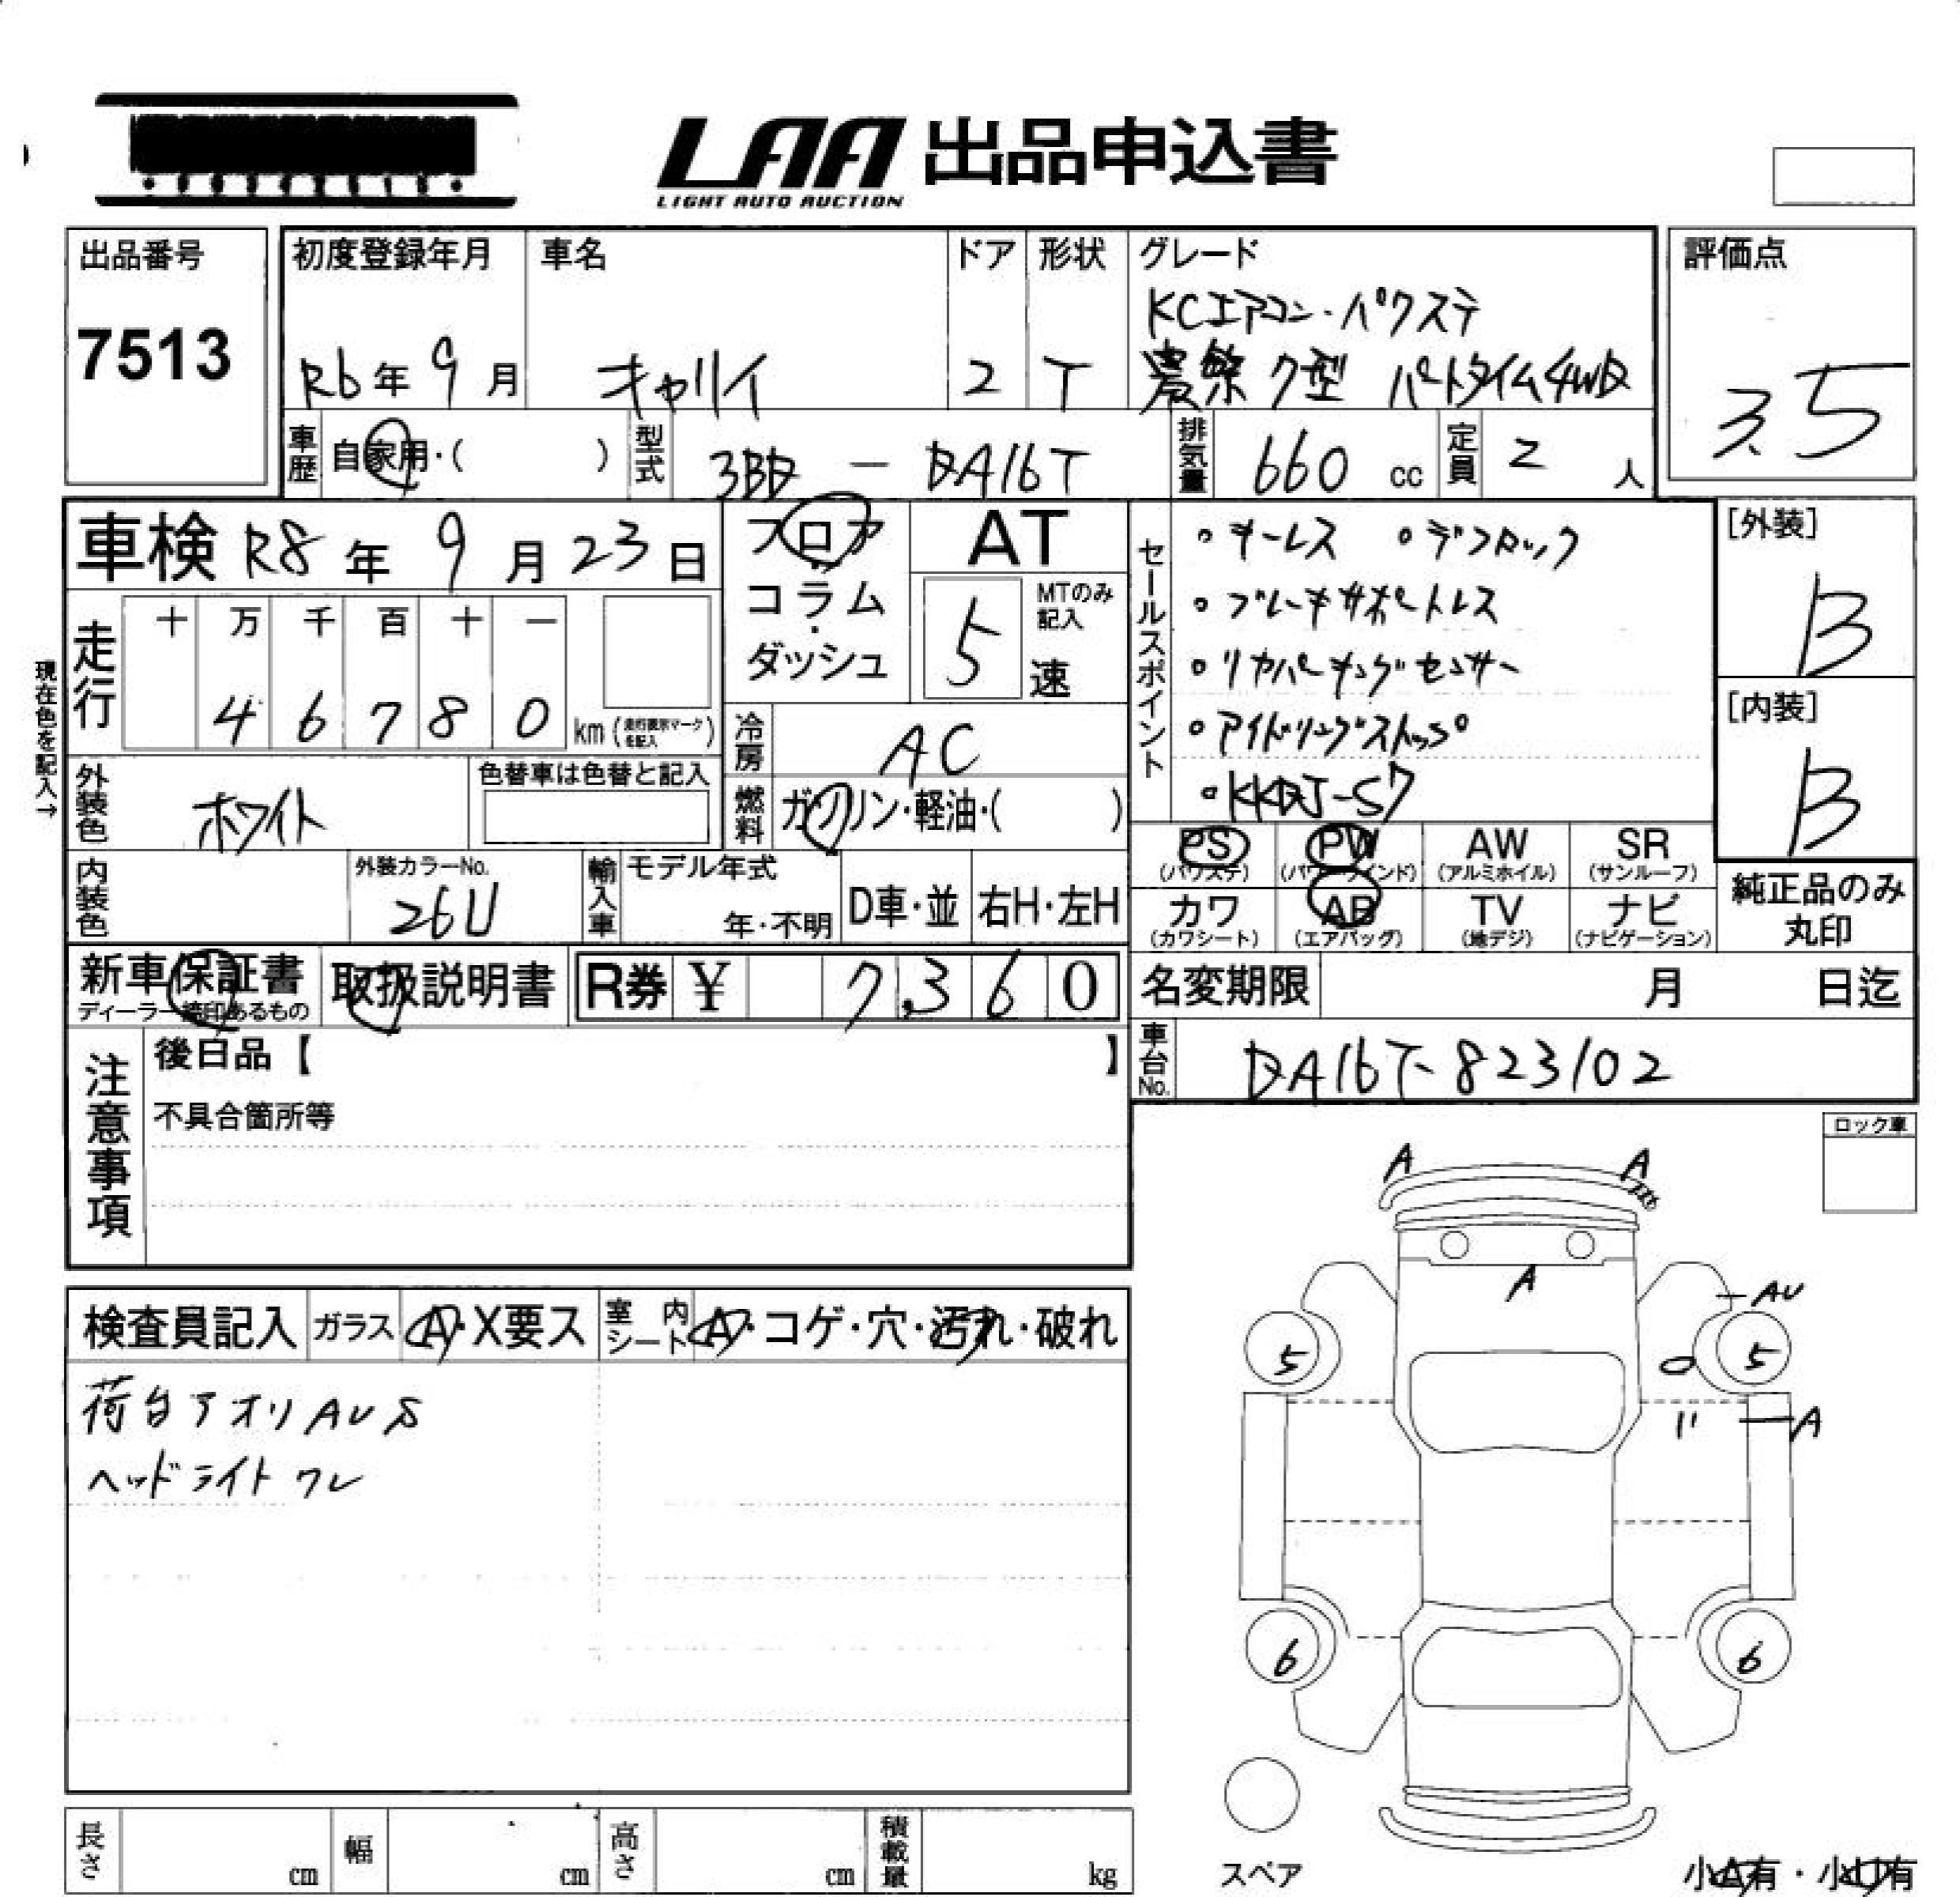 LAA 出品申込書
LIGHT AUTO AUCTION
出品番号
7513
初度登録年月
R6年 9月
車名
キャリイ
ドア
2
形状
T
グレード
KCエアコン・パワステ
農繁 ク型 パートタイム4WD
評価点
3.5
車歴
自家用・( )
型式
3BD - DA16T
排気量
660 cc
定員
2 人
車検 R8年 9月 23日
フロア
コラム
・
ダッシュ
AT
5
MTのみ
記入
速
セールスポイント
・キーレス ・デフロック
・ブレーキサポートレス
・リヤパーキングセンサー
・アイドリングストップ
・KKDJ-S7
[外装]
B
[内装]
B
現在色を記入→
走行
十 万 千 百 十 一
4 6 7 8 0
km(走行表示マークを記入)
冷房
AC
外装色
ホワイト
色替車は色替と記入
燃料
ガソリン・軽油・( )
PS
(パワステ)
PW
(パワーウインド)
AW
(アルミホイル)
SR
(サンルーフ)
カワ
(カワシート)
AB
(エアバッグ)
TV
(地デジ)
ナビ
(ナビゲーション)
純正品のみ
丸印
内装色
外装カラーNo.
26U
輸入車
モデル年式
年・不明
D車・並
右H・左H
新車保証書
ディーラー捺印あるもの
取扱説明書
R券 ¥ 7,360
名変期限
月 日迄
車台No.
DA16T-823102
注意事項
後日品【 】
不具合箇所等
ロック車
検査員記入
ガラス
A・X要ス
室内
シート
A・コゲ・穴・汚れ・破れ
荷台アオリ AUS
ヘッドライト ワレ
A
A
A
AU
5
5
A
6
6
スペア
長さ
cm
幅
cm
高さ
cm
積載量
kg
小A有・小U有